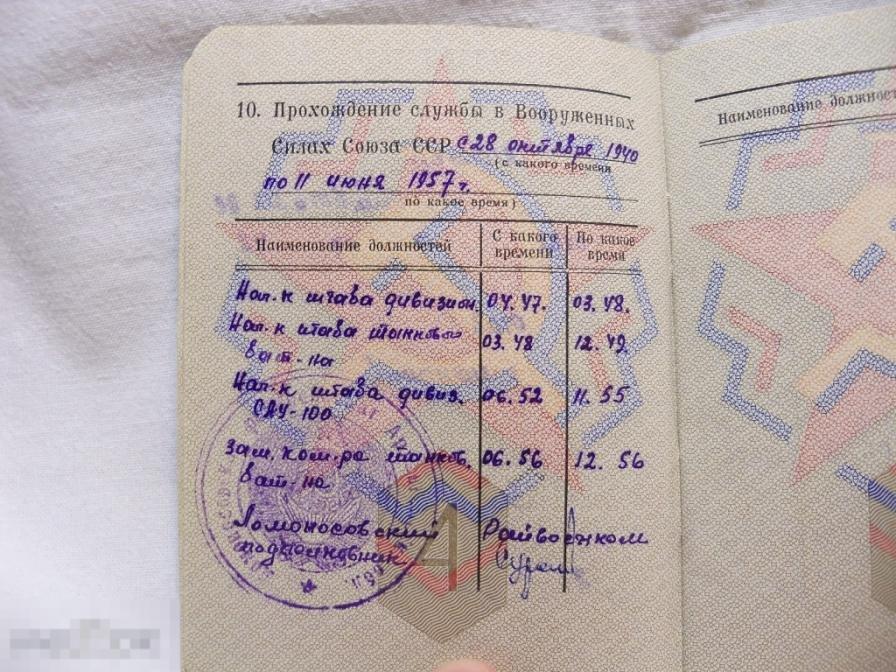 10. Прохождение службы в Вооруженных
Силах Союза ССР с 28 октября 1940
(с какого времени
по 11 июня 1957 г.
по какое время)
Наименование должностей С какого времени По какое время
Нач-к штаба дивизион. 04.47. 03.48.
Нач-к штаба танкового 03.48 12.49
бат-на
Нач-к штаба дивиз. 06.52 11.55
САУ-100
Зам. ком-ра танков. 06.56 12.56
бат-на
Ломоносовский Райвоенком
подполковник
Наименование должност